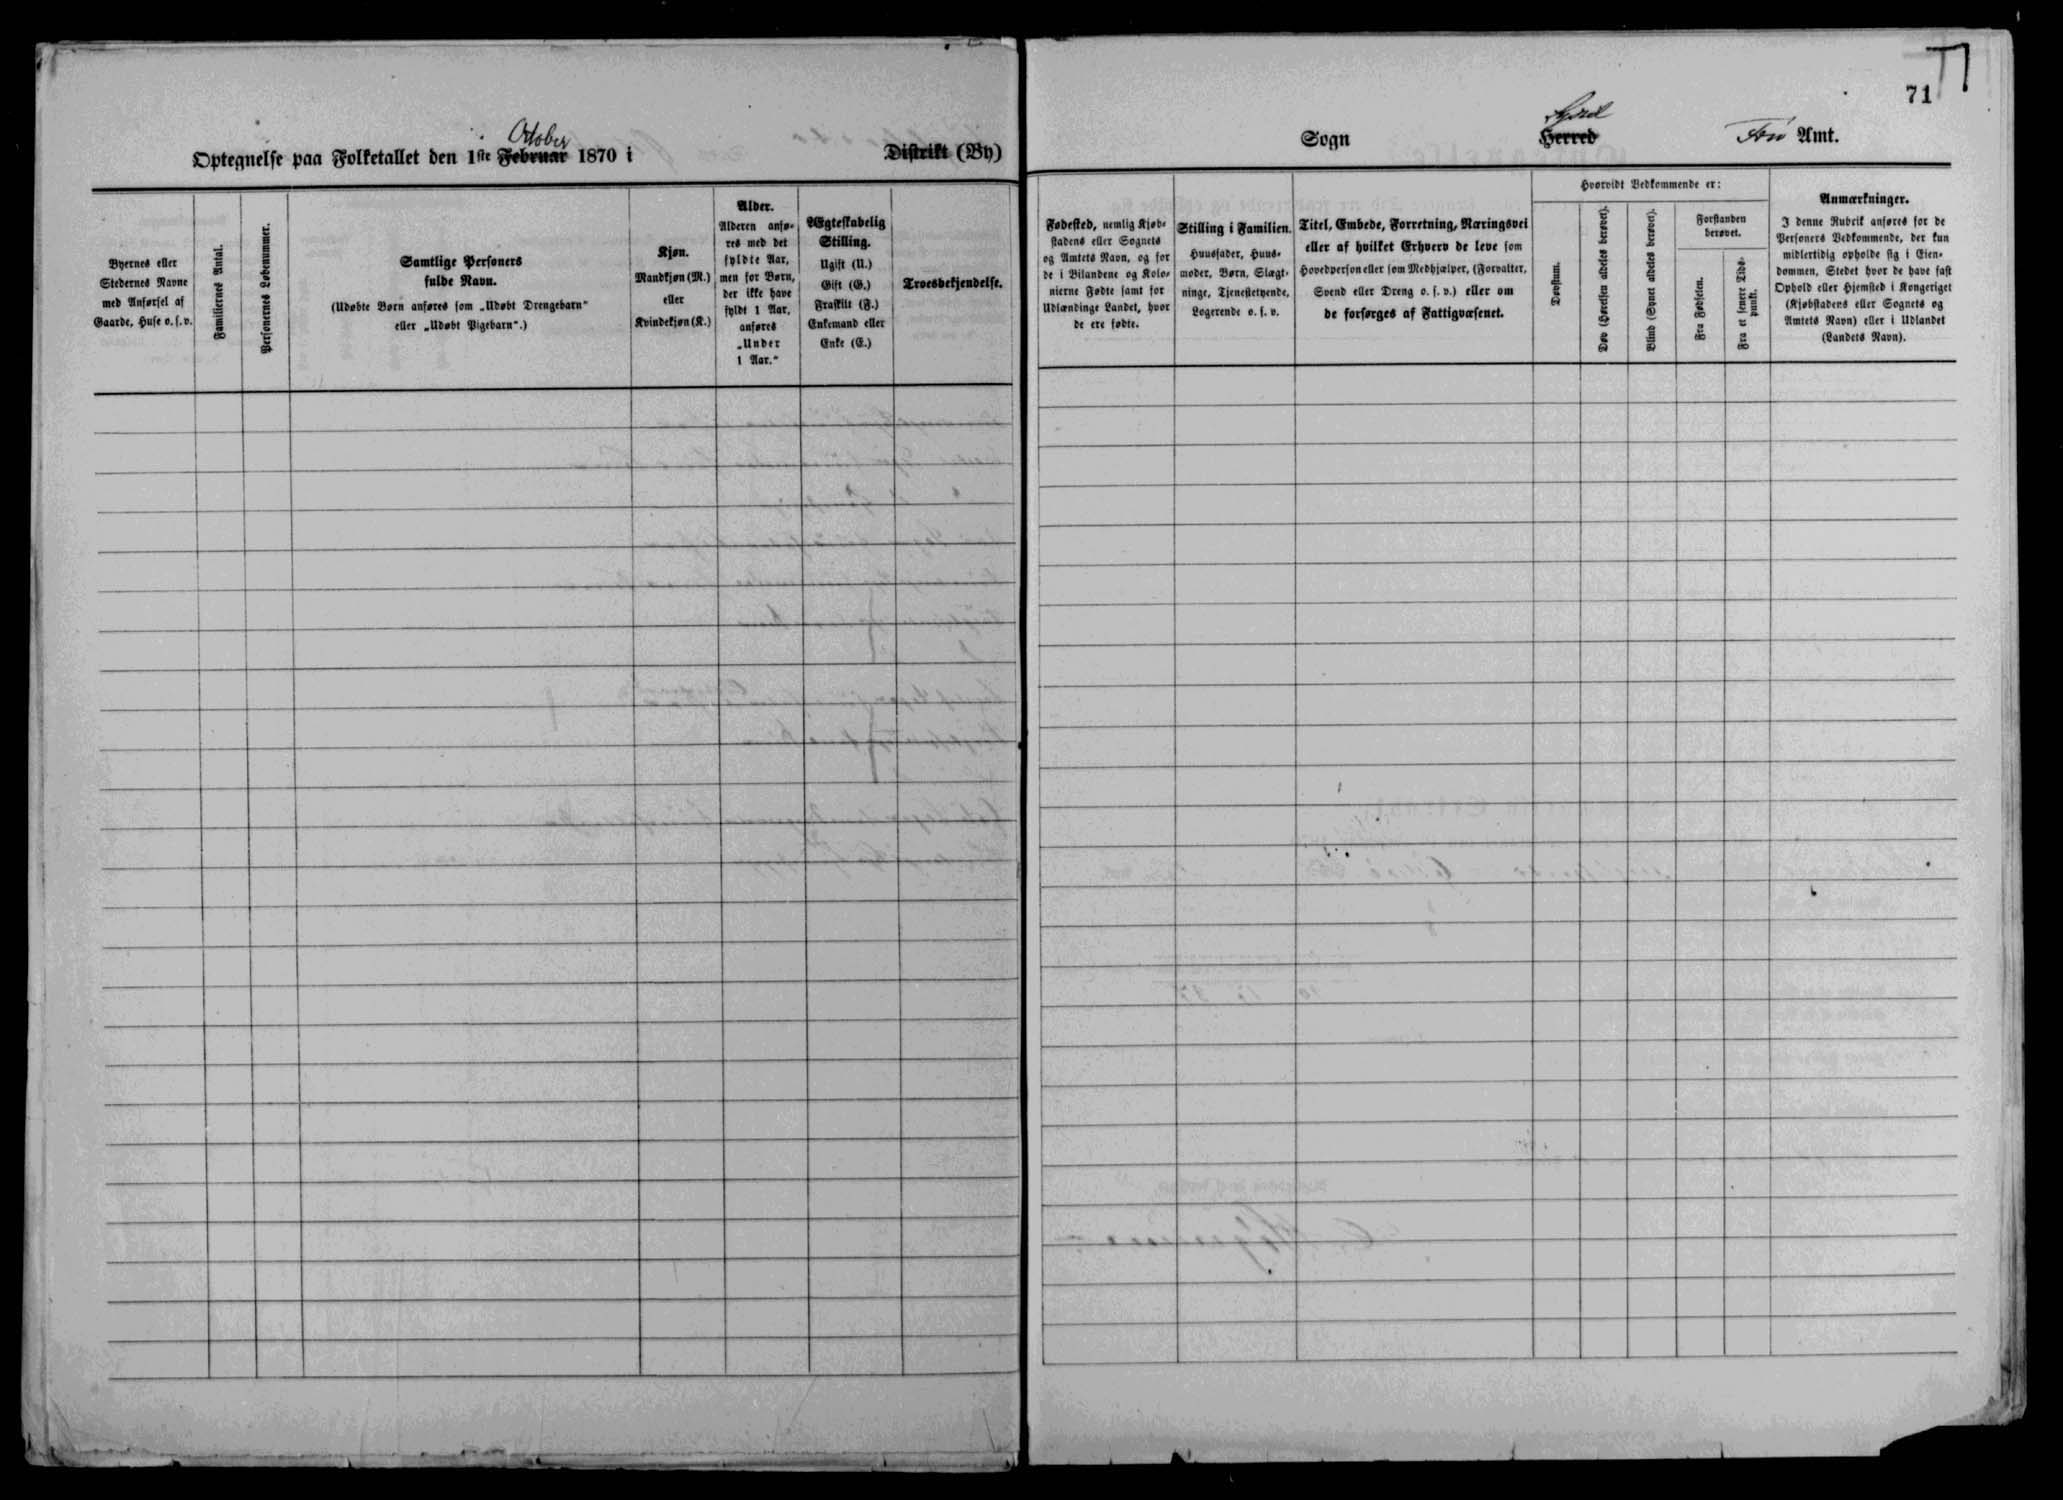 71
October
Optegnelse paa Folketallet den 1ste Februar 1870 i Distrikt (By)
Byernes eller
Stedernes Navne
med Anførsel af
Gaarde, Huse o. s. v.
Familiernes Antal.
Personernes Løbenummer.
Samtlige Personers
fulde Navn.
(Udøbte Børn anføres som „Udøbt Drengebarn“
eller „Udøbt Pigebarn“.)
Kjøn.
Mandkjøn (M.)
eller
Kvindekjøn (K.)
Alder.
Alderen anfø-
res med det
fyldte Aar,
men for Børn,
der ikke have
fyldt 1 Aar,
anføres
„Under
1 Aar.“
Ægteskabelig
Stilling.
Ugift (U.)
Gift (G.)
Fraskilt (F.)
Enkemand eller
Enke (E.)
Troesbekjendelse.
Sogn Herred Amt.
Fødested, nemlig Kjøb-
stadens eller Sognets
og Amtets Navn, og for
de i Bilandene og Kolo-
nierne Fødte samt for
Udlændinge Landet, hvor
de ere fødte.
Stilling i Familien.
Huusfader, Huus-
moder, Børn, Slægt-
ninge, Tjenestetyende,
Logerende o. s. v.
Titel, Embede, Forretning, Næringsvei
eller af hvilket Erhverv de leve som
Hovedperson eller som Medhjælper, (Forvalter,
Svend eller Dreng o. s. v.) eller om
de forsørges af Fattigvæsenet.
Hvorvidt Vedkommende er:
Døvstum.
Døv (Hørelsen aldeles berøvet).
Blind (Synet aldeles berøvet).
Forstanden
berøvet.
Fra Fødselen.
Fra et senere Tids-
punkt.
Anmærkninger.
I denne Rubrik anføres for de
Personers Vedkommende, der kun
midlertidig opholde sig i Eien-
dommen, Stedet hvor de have fast
Ophold eller Hjemsted i Kongeriget
(Kjøbstadens eller Sognets og
Amtets Navn) eller i Udlandet
(Landets Navn).